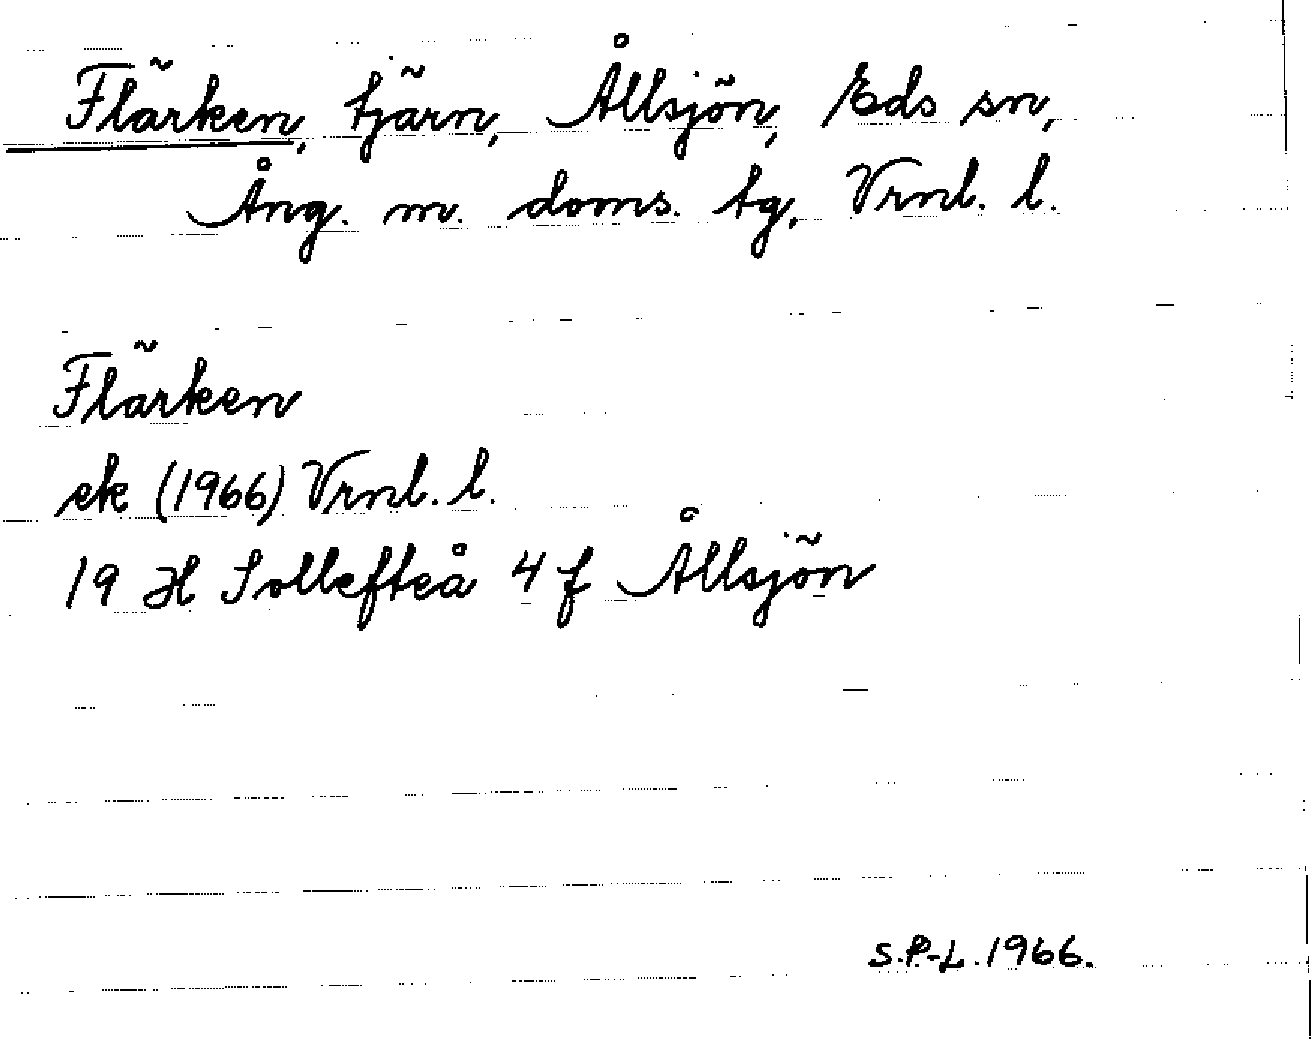 Flärken, tjärn, Ållsjön, Eds sn,
Ång. m. doms. tg, Vrnl. l.
Flärken
ek (1966) Vrnl. l.
19 H Sollefteå 4 f Ållsjön
S.P-L. 1966.